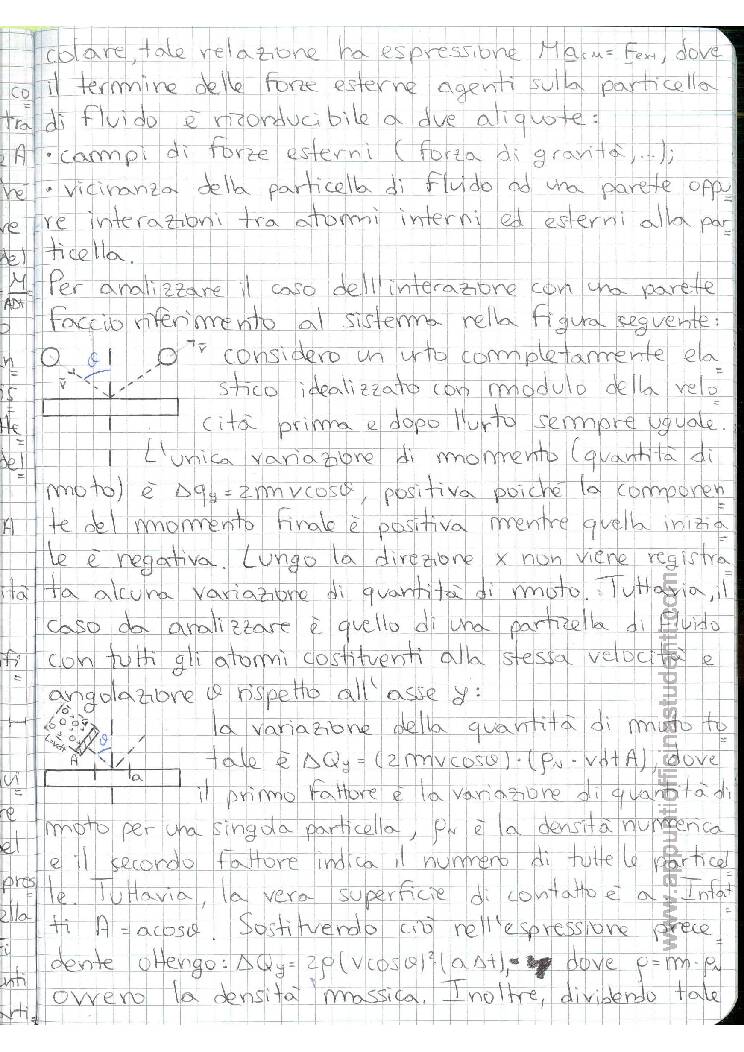 colare, tale relazione ha espressione Ma_CM = F_ext, dove
il termine delle forze esterne agenti sulla particella
di fluido è riconducibile a due aliquote:
· campi di forze esterni (forza di gravità,...);
· vicinanza della particella di fluido ad una parete oppu
re interazioni tra atomi interni ed esterni alla par
ticella.
Per analizzare il caso dell'interazione con una parete
faccio riferimento al sistema nella figura seguente:
considero un urto completamente ela
stico idealizzato con modulo della velo
cità prima e dopo l'urto sempre uguale.
L'unica variazione di momento (quantità di
moto) è Δq_y = 2mvcosθ, positiva poiché la componen
te del momento finale è positiva mentre quella inizia
le è negativa. Lungo la direzione x non viene registra
ta alcuna variazione di quantità di moto. Tuttavia, il
caso da analizzare è quello di una particella di fluido
con tutti gli atomi costituenti alla stessa velocità e
angolazione θ rispetto all'asse y:
la variazione della quantità di moto to
tale è ΔQ_y = (2mvcosθ)·(ρ_N · vdtA), dove
il primo fattore è la variazione di quantità di
moto per una singola particella, ρ_N è la densità numerica
e il secondo fattore indica il numero di tutte le particel
le. Tuttavia, la vera superficie di contatto è a. Infat
ti A = acosθ. Sostituendo ciò nell'espressione prece
dente ottengo: ΔQ_y = 2ρ(vcosθ)²(aΔt), dove ρ = m·ρ_N
ovvero la densità massica. Inoltre, dividendo tale
www.appuntiofficinastudenti.com